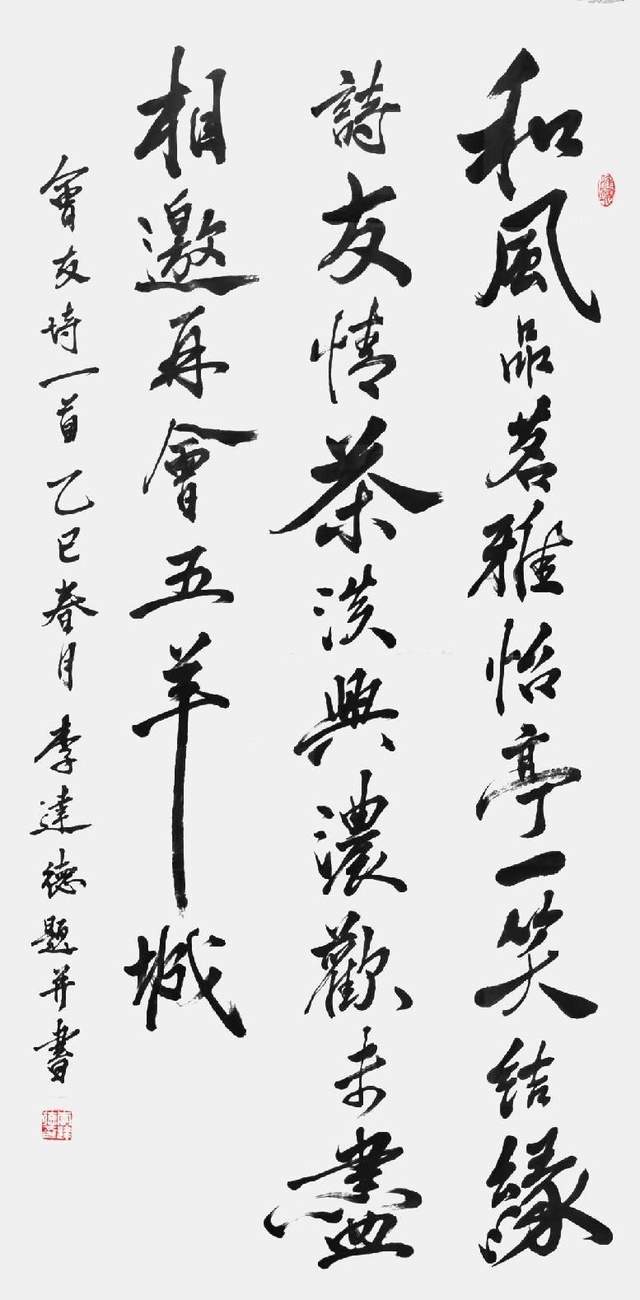 和風品茗雅怡亭一笑結緣
詩友情茶淡興濃歡未盡
相邀再會五羊城
會友詩一首乙巳春月李達德題并書